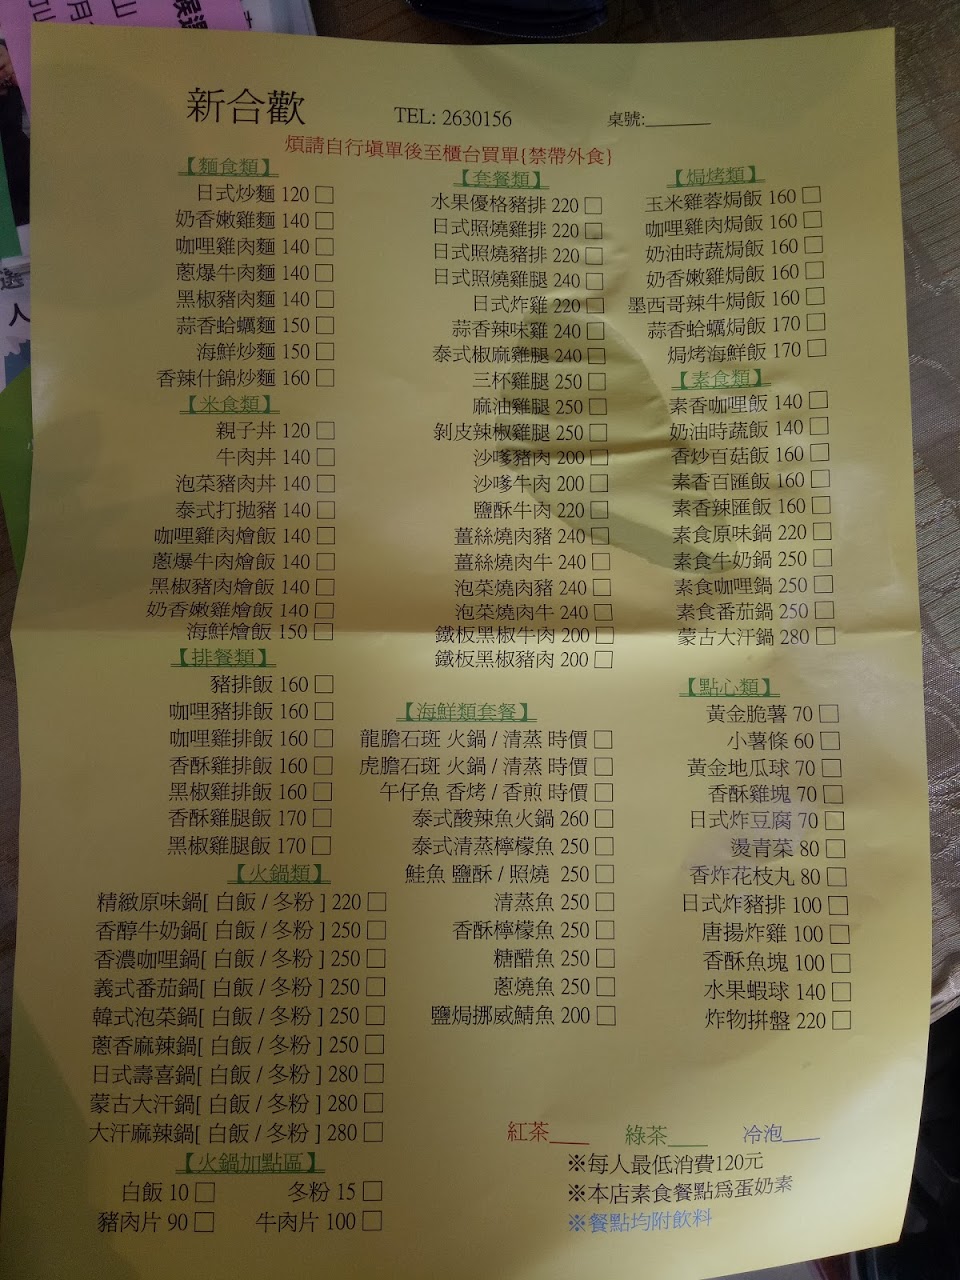 新合歡
TEL: 2630156
桌號:______
煩請自行塡單後至櫃台買單{禁帶外食}
【麵食類】
日式炒麵 120 □
奶香嫩雞麵 140 □
咖哩雞肉麵 140 □
蔥爆牛肉麵 140 □
黑椒豬肉麵 140 □
蒜香蛤蠣麵 150 □
海鮮炒麵 150 □
香辣什錦炒麵 160 □
【米食類】
親子丼 120 □
牛肉丼 140 □
泡菜豬肉丼 140 □
泰式打拋豬 140 □
咖哩雞肉燴飯 140 □
蔥爆牛肉燴飯 140 □
黑椒豬肉燴飯 140 □
奶香嫩雞燴飯 140 □
海鮮燴飯 150 □
【排餐類】
豬排飯 160 □
咖哩豬排飯 160 □
咖哩雞排飯 160 □
香酥雞排飯 160 □
黑椒雞排飯 160 □
香酥雞腿飯 170 □
黑椒雞腿飯 170 □
【火鍋類】
精緻原味鍋[ 白飯 / 冬粉 ] 220 □
香醇牛奶鍋[ 白飯 / 冬粉 ] 250 □
香濃咖哩鍋[ 白飯 / 冬粉 ] 250 □
義式番茄鍋[ 白飯 / 冬粉 ] 250 □
韓式泡菜鍋[ 白飯 / 冬粉 ] 250 □
蔥香麻辣鍋[ 白飯 / 冬粉 ] 250 □
日式壽喜鍋[ 白飯 / 冬粉 ] 280 □
蒙古大汗鍋[ 白飯 / 冬粉 ] 280 □
大汗麻辣鍋[ 白飯 / 冬粉 ] 280 □
【火鍋加點區】
白飯 10 □ 冬粉 15 □
豬肉片 90 □ 牛肉片 100 □
【套餐類】
水果優格豬排 220 □
日式照燒雞排 220 □
日式照燒豬排 220 □
日式照燒雞腿 240 □
日式炸雞 220 □
蒜香辣味雞 240 □
泰式椒麻雞腿 240 □
三杯雞腿 250 □
麻油雞腿 250 □
剝皮辣椒雞腿 250 □
沙嗲豬肉 200 □
沙嗲牛肉 200 □
鹽酥牛肉 220 □
薑絲燒肉豬 240 □
薑絲燒肉牛 240 □
泡菜燒肉豬 240 □
泡菜燒肉牛 240 □
鐵板黑椒牛肉 200 □
鐵板黑椒豬肉 200 □
【海鮮類套餐】
龍膽石斑 火鍋 / 清蒸 時價 □
虎膽石斑 火鍋 / 清蒸 時價 □
午仔魚 香烤 / 香煎 時價 □
泰式酸辣魚火鍋 260 □
泰式清蒸檸檬魚 250 □
鮭魚 鹽酥 / 照燒 250 □
清蒸魚 250 □
香酥檸檬魚 250 □
糖醋魚 250 □
蔥燒魚 250 □
鹽焗挪威鯖魚 200 □
【焗烤類】
玉米雞蓉焗飯 160 □
咖哩雞肉焗飯 160 □
奶油時蔬焗飯 160 □
奶香嫩雞焗飯 160 □
墨西哥辣牛焗飯 160 □
蒜香蛤蠣焗飯 170 □
焗烤海鮮飯 170 □
【素食類】
素香咖哩飯 140 □
奶油時蔬飯 140 □
香炒百菇飯 160 □
素香百匯飯 160 □
素香辣匯飯 160 □
素食原味鍋 220 □
素食牛奶鍋 250 □
素食咖哩鍋 250 □
素食番茄鍋 250 □
蒙古大汗鍋 280 □
【點心類】
黃金脆薯 70 □
小薯條 60 □
黃金地瓜球 70 □
香酥雞塊 70 □
日式炸豆腐 70 □
燙青菜 80 □
香炸花枝丸 80 □
日式炸豬排 100 □
唐揚炸雞 100 □
香酥魚塊 100 □
水果蝦球 140 □
炸物拼盤 220 □
紅茶___ 綠茶___ 冷泡___
※每人最低消費120元
※本店素食餐點爲蛋奶素
※餐點均附飲料